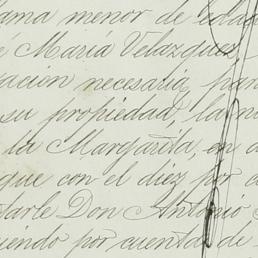 ama menor de edad
é María Velazquez,
acion necesaria para
su propiedad, la
la Margarita, en
que con el diez por
tarle Don Antonio
iendo por cuenta de